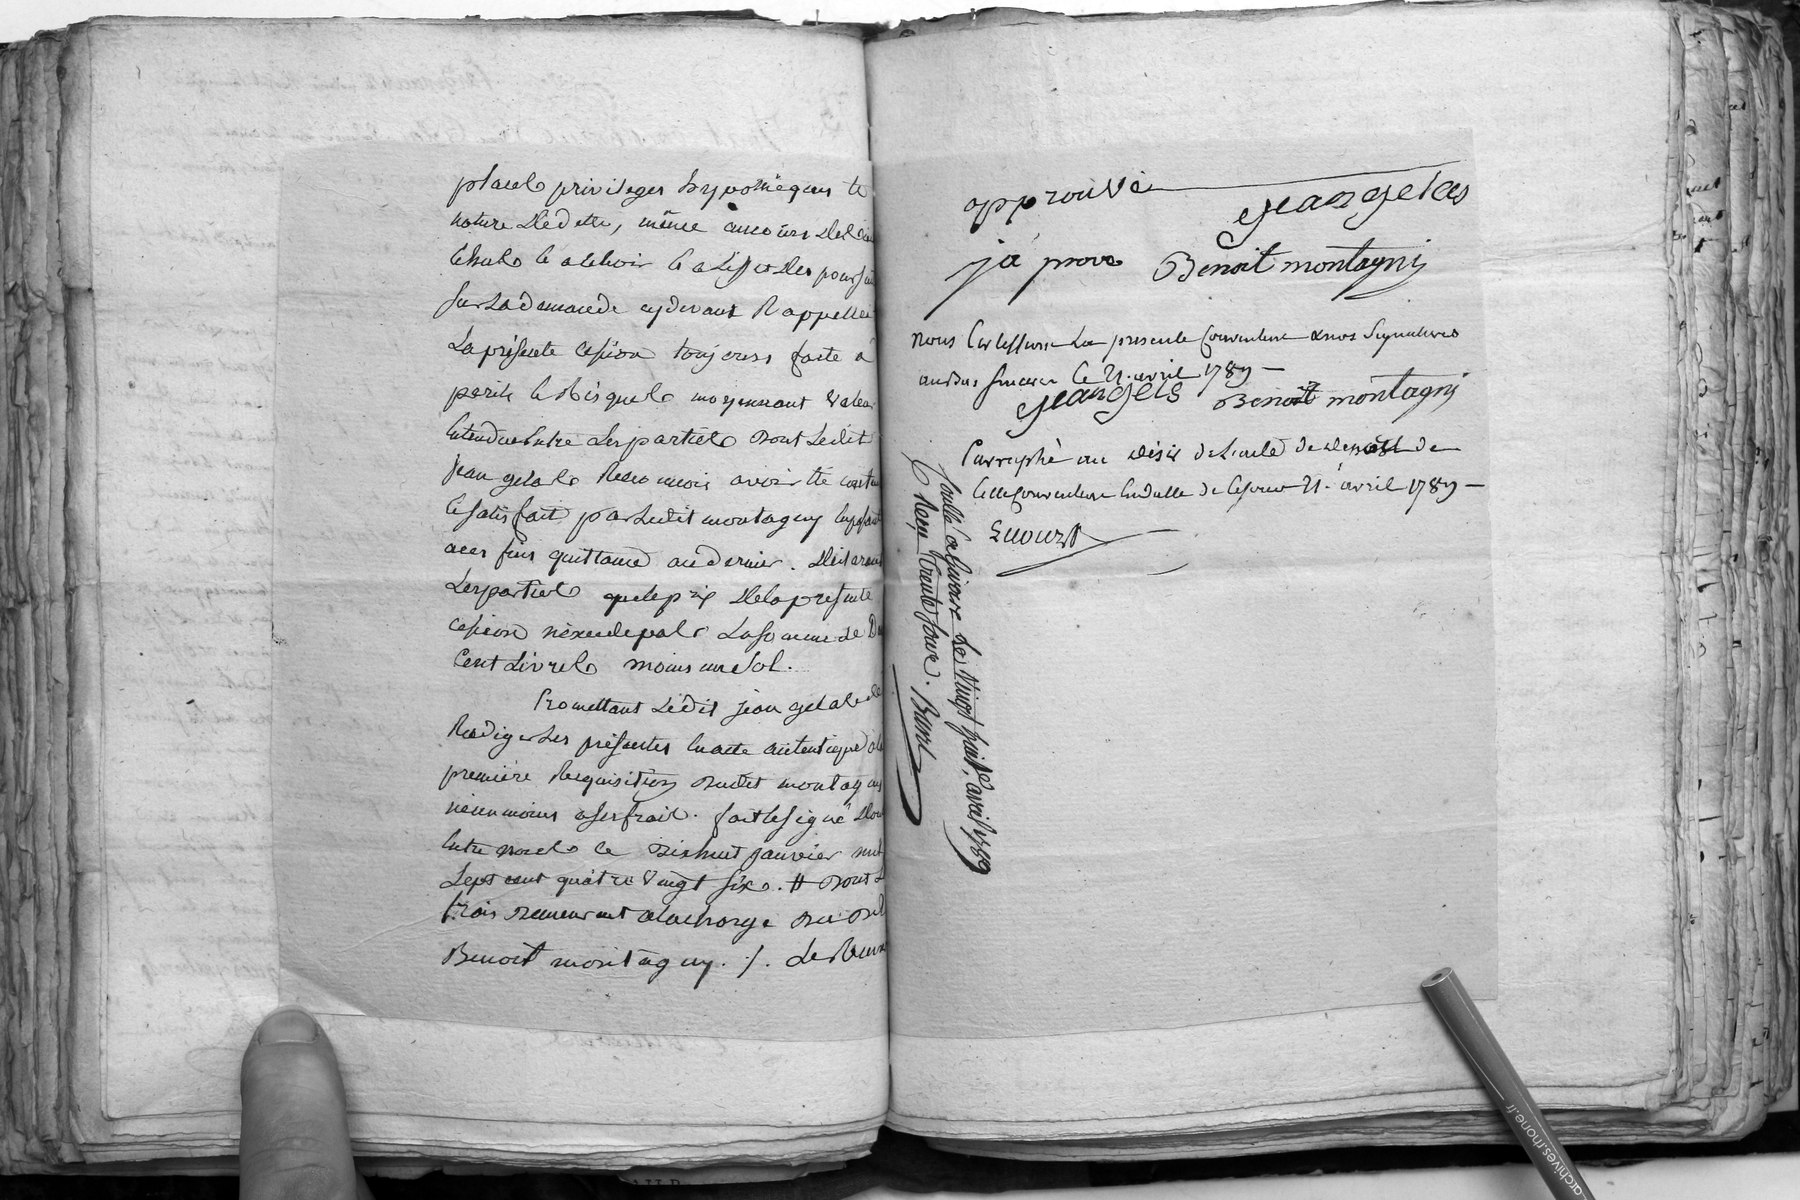 place privileges hypothèques et
nature de dette, même
sur la demande cy devant Rappellée
La présente cession toujours faite à
périls et Risques moyennant valeur
entendue entre les parties dont ledit
jean gelas Reconnoit avoir été content
et satisfait par ledit montagny
aces fins quittance au dernier. Déclarant
les parties que le prix de la présente
cession n'excede pas la somme de Deux
Cent Livres moins un sol.
Promettant Ledit jean gelas de
Rediger les présentes en acte autentique à la
première Requisition dudit montagny
néanmoins a ses frais. fait et signé Double
entre nous le dixhuit janvier mil
sept cent quatre vingt six. # dont les
frais demeurent a la charge du dit
Benoit montagny ./.
approuvé jean gelas
ja prove Benoit montagny
nous Certiffions La presente Convention & nos signatures
audessus sinceres le 21. avril 1789 —
jean gelas Benoit montagny
Parraphé au désir de l'acte de dépôt de
cette Convention en datte de ce jour 21. avril 1789 —
le vingt huit avril 1789
Reçu trente sous.
archives.rhone.fr